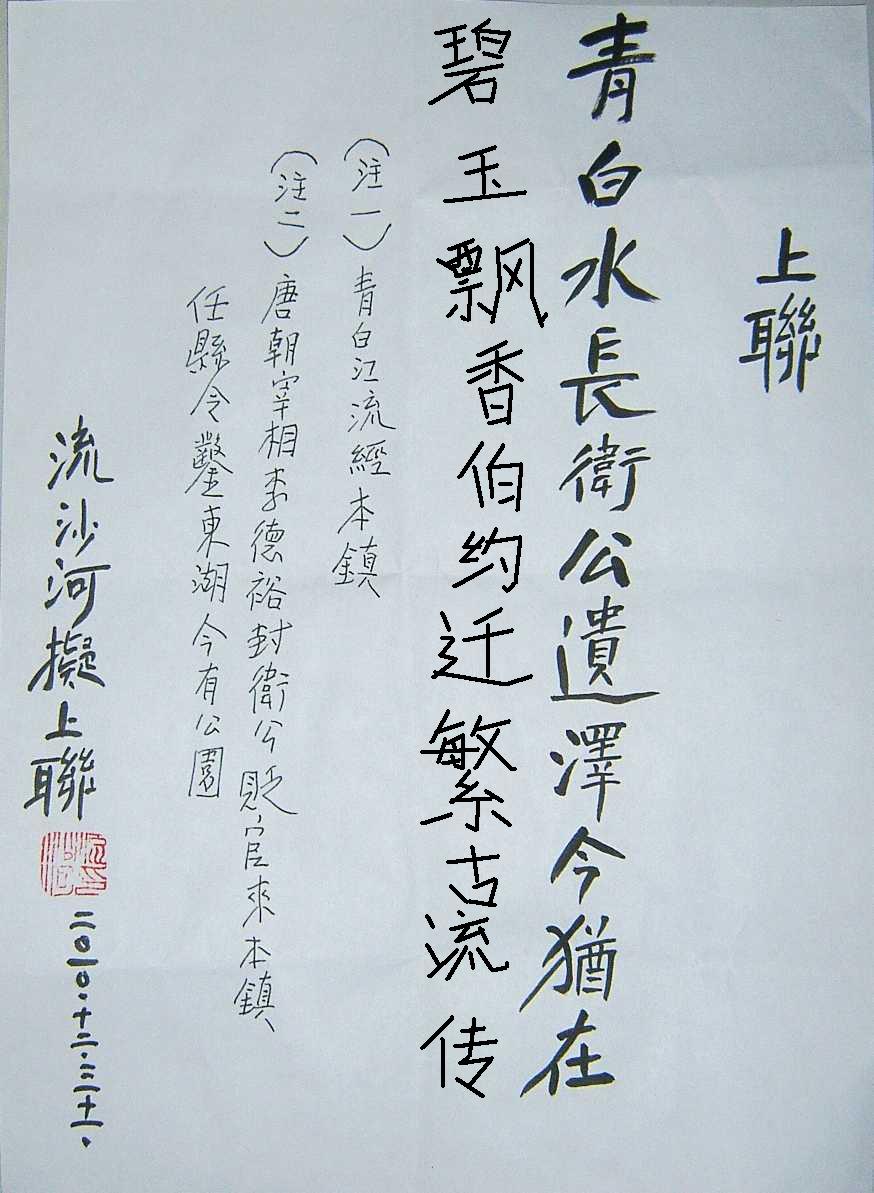 上聯
青白水長衛公遺澤今猶在
碧玉飘香伯约迁繁古流传
（注一）青白江流經本鎮
（注二）唐朝宰相李德裕封衛公貶官來本鎮
任縣令鑿東湖今有公園
流沙河擬上聯
二〇一〇·十二·二十一·